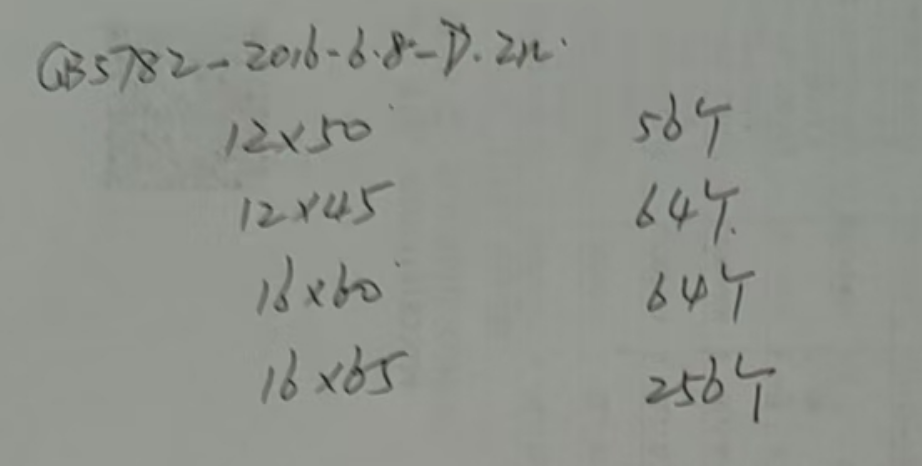 GB5782-2016-6.8-D.Zn.
12x50 56个
12x45 64个
16x60 64个
16x65 256个